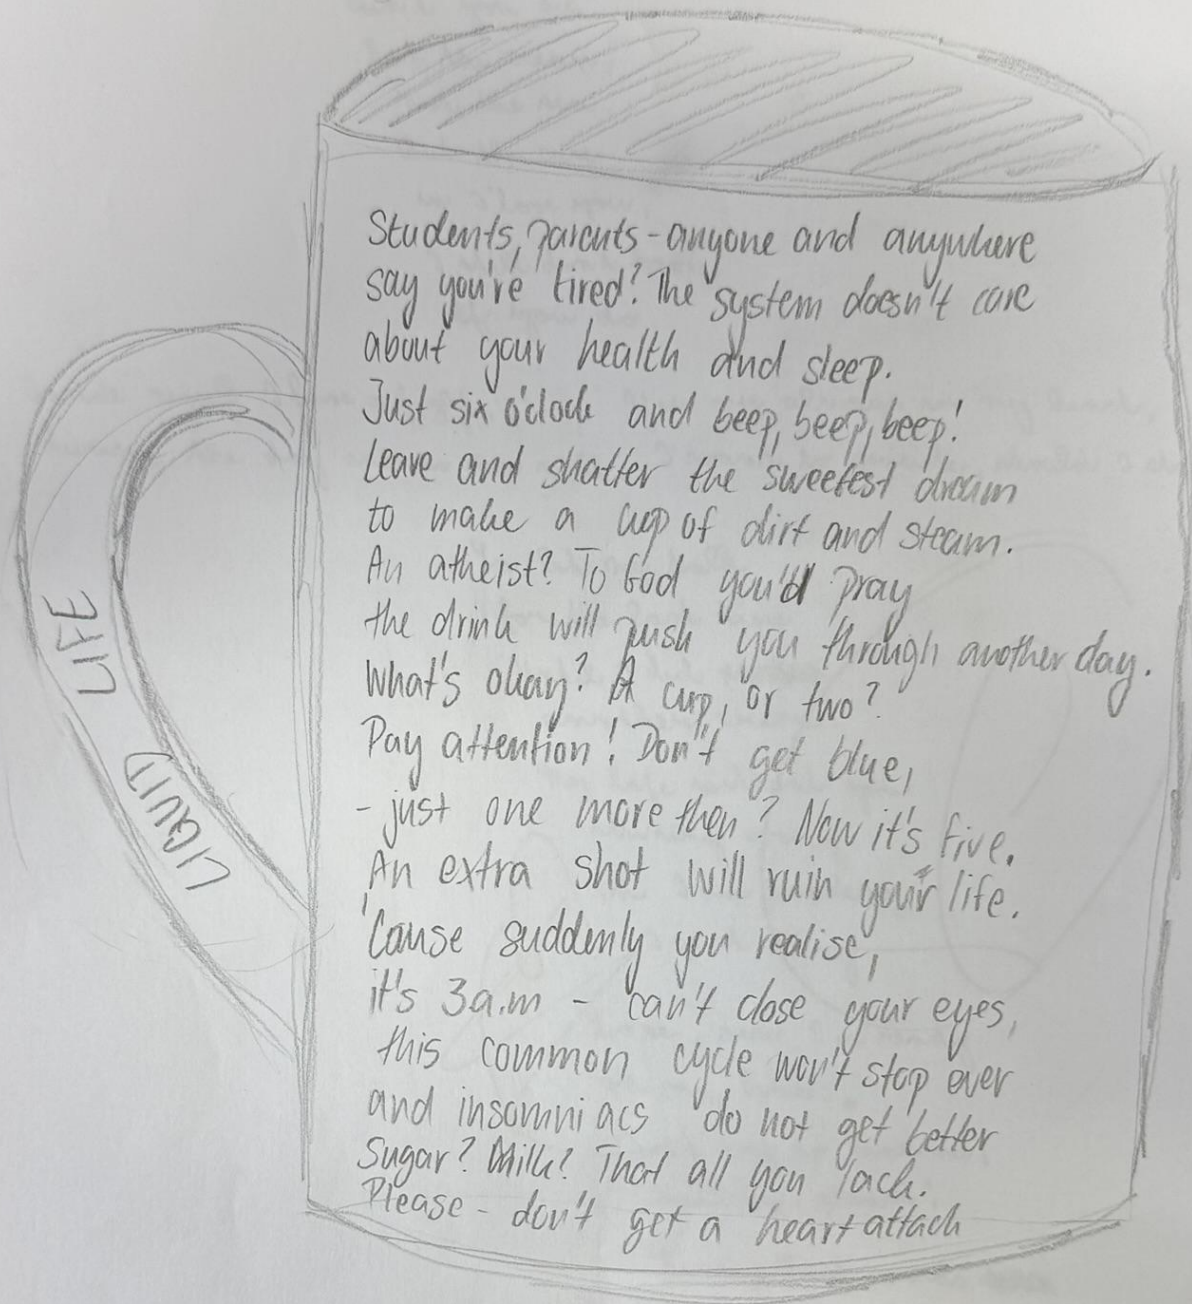 Students, parents - anyone and anywhere
say you're tired? The system doesn't care
about your health and sleep.
Just six o'clock and beep, beep, beep!
Leave and shatter the sweetest dream
to make a cup of dirt and steam.
An atheist? To God you'd pray
the drink will push you through another day.
What's okay? A cup, or two?
Pay attention! Don't get blue,
- just one more then? Now it's five.
An extra shot will ruin your life.
'Cause suddenly you realise,
it's 3a.m - can't close your eyes,
this common cycle won't stop ever
and insomniacs do not get better
Sugar? Milk? That all you lack.
Please - don't get a heart attack
LIQUID LIFE